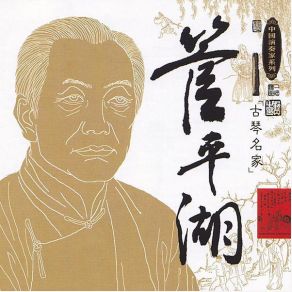 中国演奏家系列
「古琴名家」
管平湖